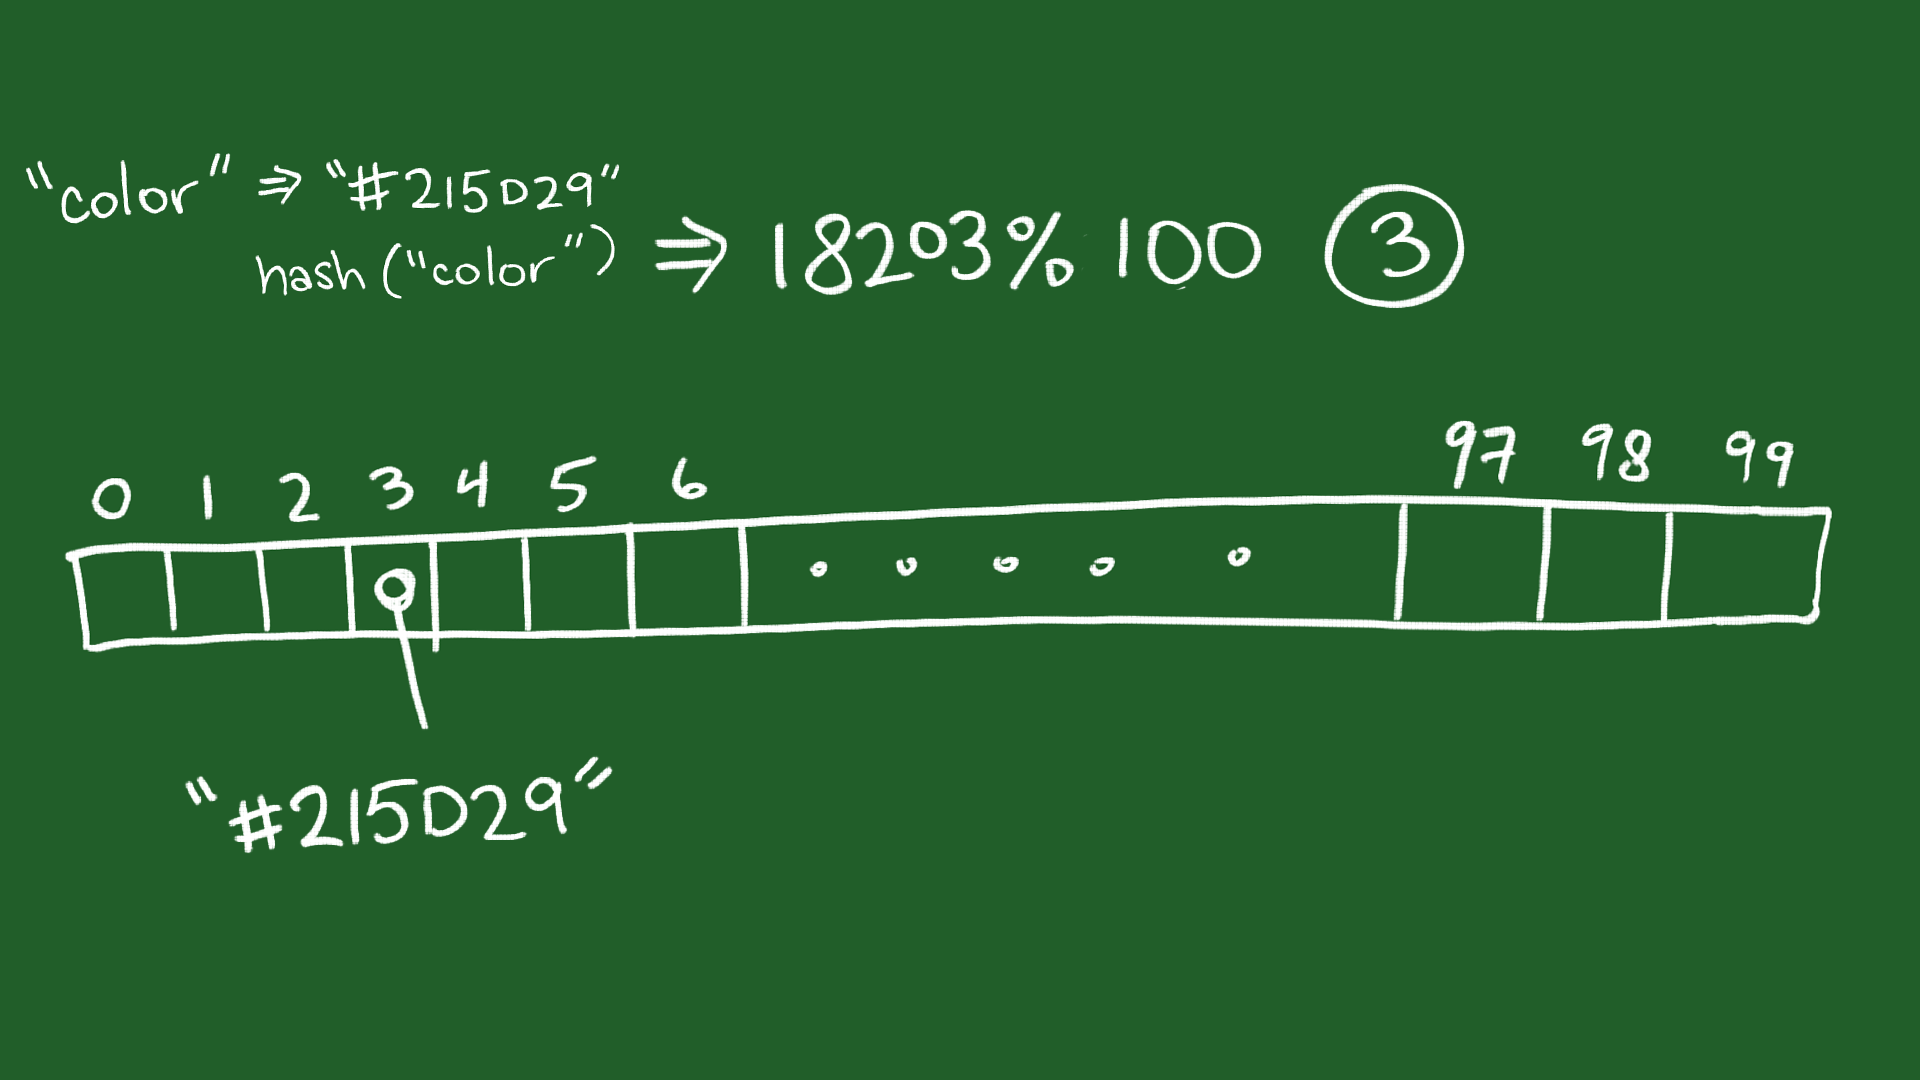 "color" ⇒ "#215D29"
hash("color") ⇒ 18203% 100 3
0 1 2 3 4 5 6 97 98 99
"#215D29"